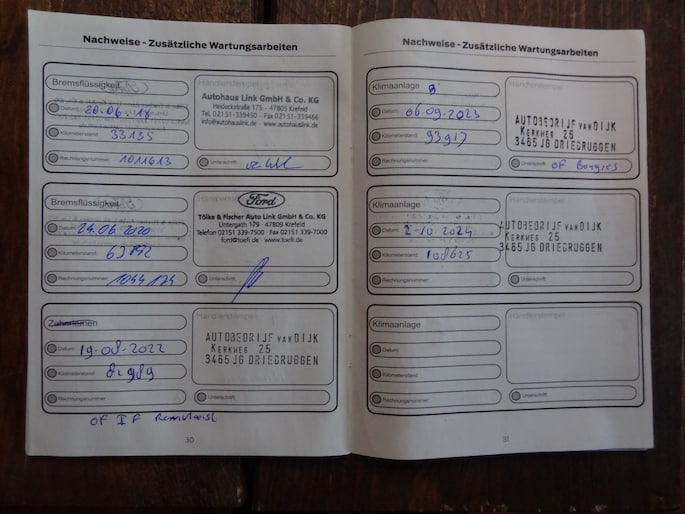 Nachweise - Zusätzliche Wartungsarbeiten
Bremsflüssigkeit
Händlerstempel
Datum 20.06.18
Autohaus Link GmbH & Co. KG
Heideckstraße 175 - 47805 Krefeld
Tel. 02151-339450 - Fax 02151-339466
info@autohauslink.de - www.autohauslink.de
Kilometerstand 33135
Rechnungsnummer 1011613
Unterschrift
Bremsflüssigkeit
Ford
Datum 24.06 2020
Tölke & Fischer Auto Link GmbH & Co. KG
Untergath 179 - 47805 Krefeld
Telefon 02151 339-7500 - Fax 02151 339-7000
ford@toefi.de www.toefi.de
Kilometerstand
Rechnungsnummer 1044174
Unterschrift
Zahnriemen
Händlerstempel
Datum 19-08-2022
AUTOBEDRIJF VAN DIJK
KERKWEG 25
3465 JG DRIEBRUGGEN
Kilometerstand 81989
Rechnungsnummer
Unterschrift
OF
30
Nachweise - Zusätzliche Wartungsarbeiten
Klimaanlage
Händlerstempel
Datum 06.09.2023
AUTOBEDRIJF VAN DIJK
KERKWEG 25
3465 JG DRIEBRUGGEN
Kilometerstand 93917
Rechnungsnummer
Unterschrift OF
Klimaanlage
Datum 2-10.2024
AUTOBEDRIJF VAN DIJK
KERKWEG 25
3465 JG DRIEBRUGGEN
Kilometerstand 108625
Rechnungsnummer
Unterschrift
Klimaanlage
Händlerstempel
Datum
Kilometerstand
Rechnungsnummer
Unterschrift
31